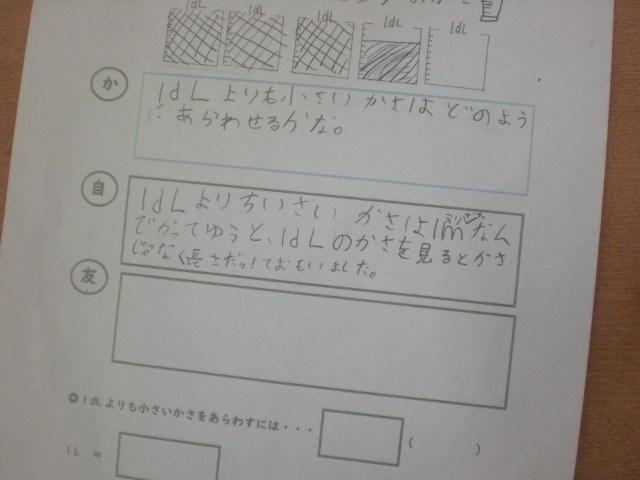 1dL
1dL
1dL
1dL
1dL
か
1dLよりも小さいかさはどのよう
にあらわせるかな。
自
1dLよりちいさいかさは1mなん
でかってゆうと、1dLのかさを見るとかさ
じゃなく長さだっ!ておもいました。
友
◎1dLよりも小さいかさをあらわすには・・・ ( )
1L =